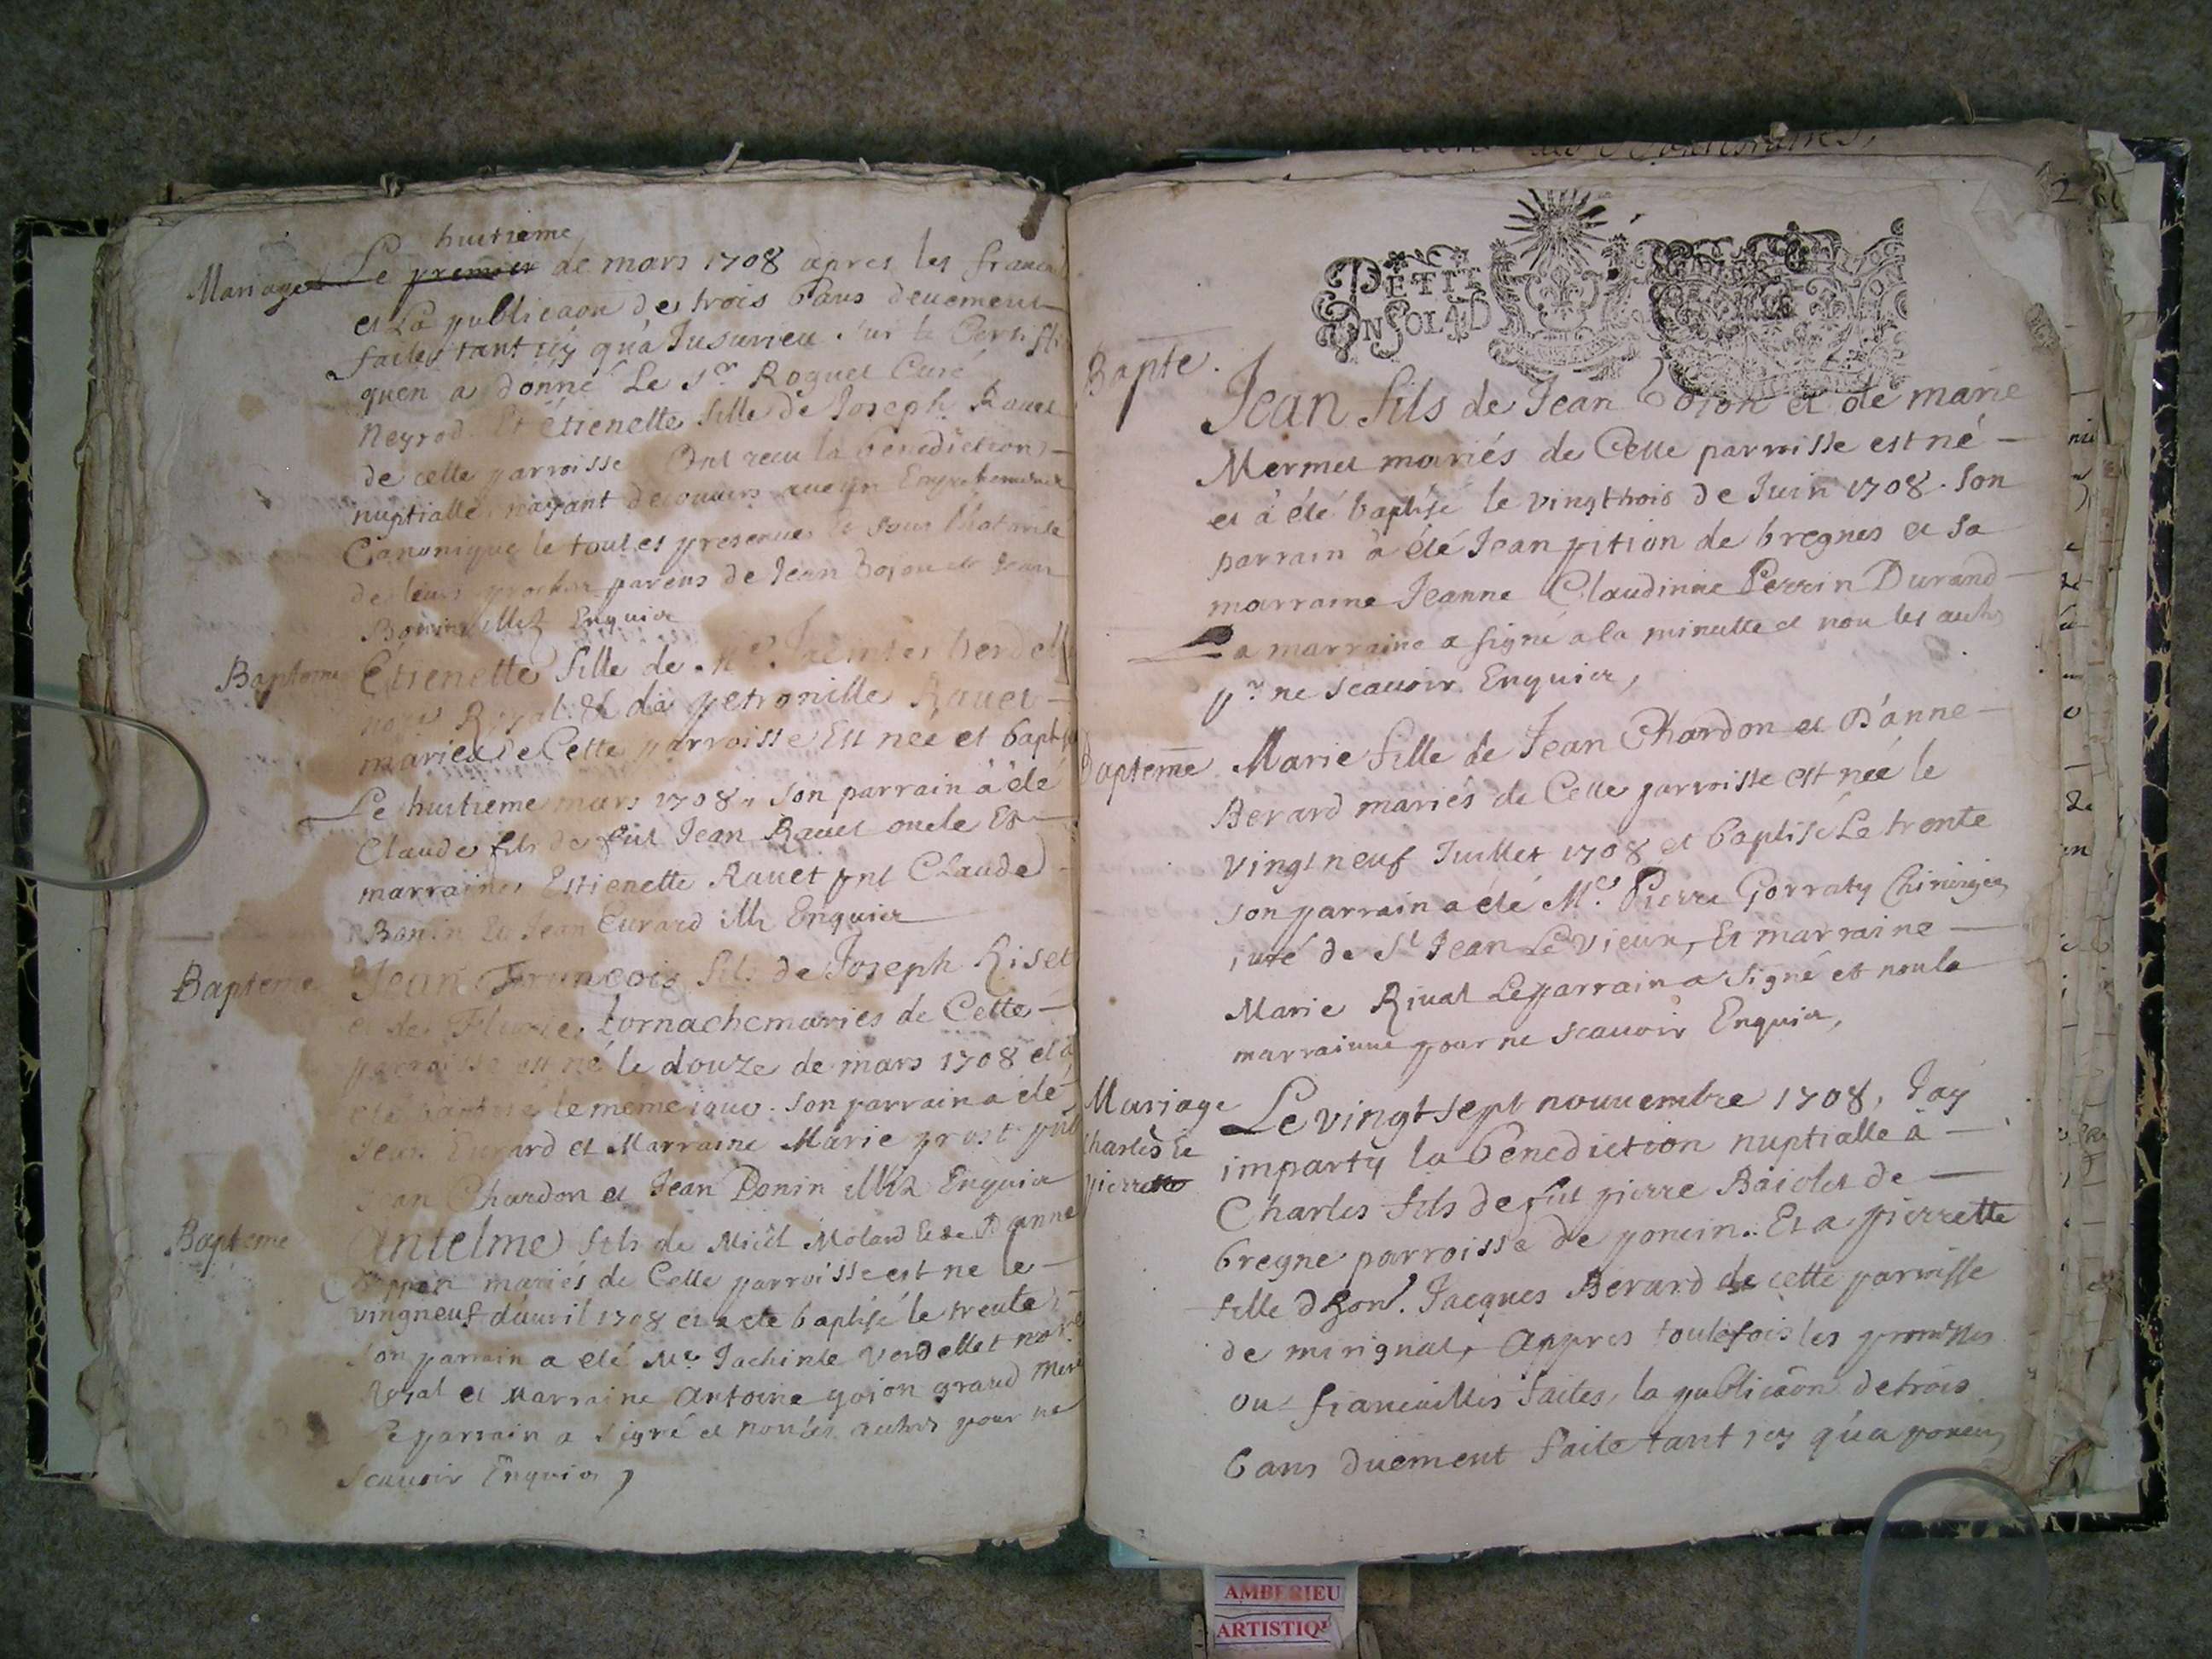 huitieme
Mariage Le premier de mars 1708 apres les fiancail
et La publicaon de trois bans deuement
faites tant icy qu'a Jusurieu sur le Certifi
quen a donné Le Sr Roguet Curé
Neyrod Et étienette fille de Joseph Rauet
de cette parroisse Ont receu la benediction
nuptialle nayant decouuers aucun Empechement
Canonique le tout es presences et sous l'hatorité
de leurs proches parens de Jean Bojon et Jean
Enquier
Bapteme Étienette fille de Me Jacintes Verdell
nore Royal & da petronille Rauet
mariéz de Cette parroisse Est née et bapt
Le huitieme mars 1708. son parrain à élé
Claude fils de fut Jean Rauet oncle Et
marraine Estienette Rauet pnt Claude
Bonin Et Jean Eurard Enquier
Bapteme Jean Francois fils de Joseph Riset
et de Flurie tornache mariés de Cette
parroisse est né le douze de mars 1708 et a
eté baptisé le méme jour. son parrain a élé
Jean Eurard et Marraine Marie prost pnt
Jean Chardon et Jean Bonin Enquier
Bapteme Antelme fils de Micel Molard Et de D'anne
mariés de Cette parroisse est ne le
vingneuf d'auril 1708 et a ete baptisé le trente
son parrain a eté Me Jachinte Verdellet nore
Royal et Marraine Antoine gojon grand mere
Le parrain a signé et non les autres pour ne
scauoir Enquier
2
PETIT
EN SOL A D
Bapte. Jean fils de Jean Bojon et de marie
Mermet mariés de Cette parroisse est né
et à élé baptisé le vingt trois de Juin 1708. son
parrain à élé Jean pition de bregnes et sa
marraine Jeanne Claudinne Perrin Durand
La marraine a signé a la minutte et non les autres
pr ne scauoir Enquier,
Bapteme Marie fille de Jean Chardon et D'anne
Berard mariés de Cette parroisse est née le
vingt neuf Juillet 1708 et baptisé Le trente
son parrain a élé Me. Pierre Gorraty Chirurgien
juré de St Jean Le vieux, Et marraine
Marie Riual Le parrain a signé et non la
marrainne pour ne scauoir Enquier,
Mariage Le vingt sept nouuembre 1708, J'ay
Charles Et imparty la benediction nuptialle à
pierrette Charles fils de fut pierre Baiolet de
bregne parroisse de poncin. Et a pierrette
fille d'hon. Jacques Berard de cette parroisse
de mirignat, Appres toutefois les promesses
ou fiancailles faites, la publicaon de trois
bans duement faite tant icy qu'a poncin
AMBERIEU
ARTISTIQU